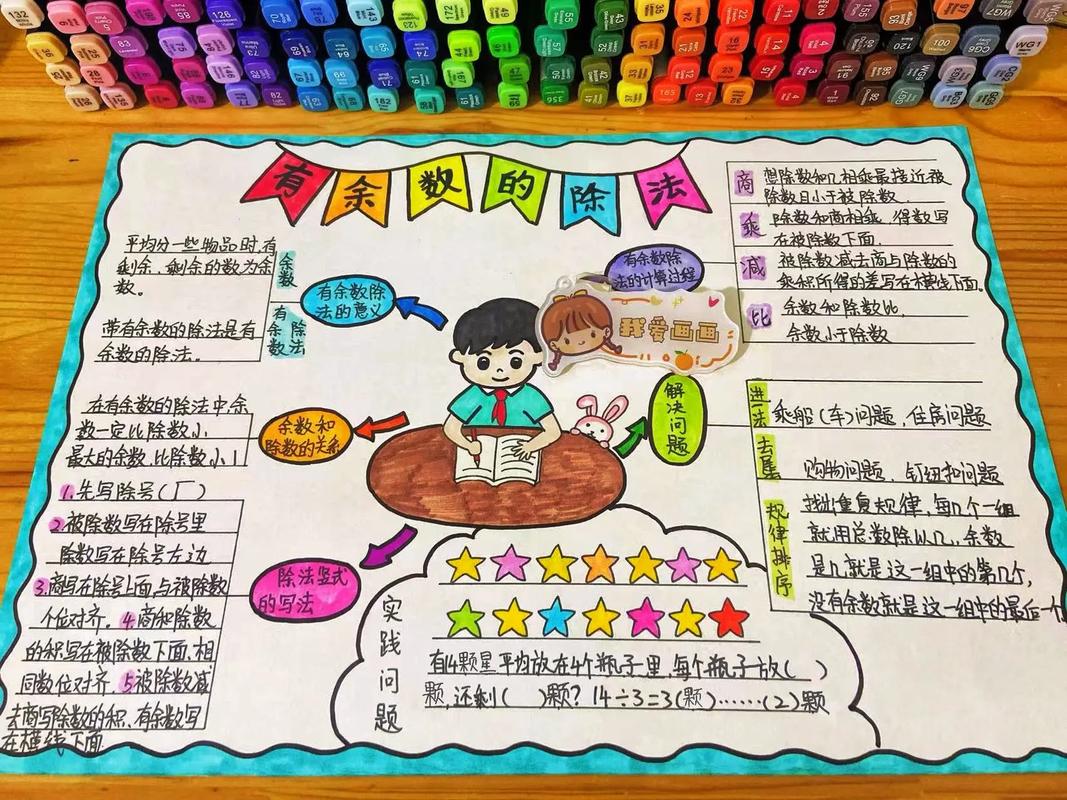 有余数的除法
平均分一些物品时,有
剩余,剩余的数为余
数。
余数
带有余数的除法是有
余数的除法。
有余数
除法
有余数除
法的意义
在有余数的除法中,余
数一定比除数小
最大的余数,比除数小1
余数和
除数的关系
1.先写除号(厂)
2.被除数写在除号里
除数写在除号左边
3.商写在除号上面,与被除数
个位对齐。4.商和除数
的积写在被除数下面,相
同数位对齐.5被除数减
去商写除数的积、有余数写
在横线下面
除法竖式
的写法
有余数除
法的计算过程
商
想除数和几相乘最接近被
除数且小于被除数.
乘
除数和商相乘,得数写
在被除数下面.
减
被除数减去商与除数的
乘积所得的差写在横线下面。
比
余数和除数比,
余数小于除数
我爱画画
解决问题
进一法
乘船(车)问题,住房问题
去尾
购物问题,钉纽扣问题
规律排序
找出重复规律,每几个一组
就用总数除以几,余数
是几就是这一组中的第几个,
没有余数就是这一组中的最后一个
实践问题
有14颗星平均放在4个瓶子里,每个瓶子放( )
颗,还剩( )颗? 14÷3=3(颗)……(2)颗